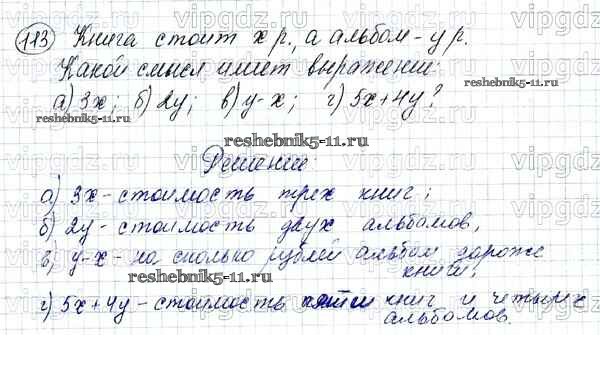 113 Книга стоит x р., а альбом – y р.
Какой смысл имеет выражение:
а) 3x; б) 2y; в) y-x; г) 5x+4y?
reshebnik5-11.ru
Решение:
а) 3x – стоимость трех книг;
б) 2y – стоимость двух альбомов,
в) y-x – на сколько рублей альбом дороже
книги;
reshebnik5-11.ru
г) 5x+4y – стоимость пяти книг и четырех
альбомов.
reshebnik5-11.ru